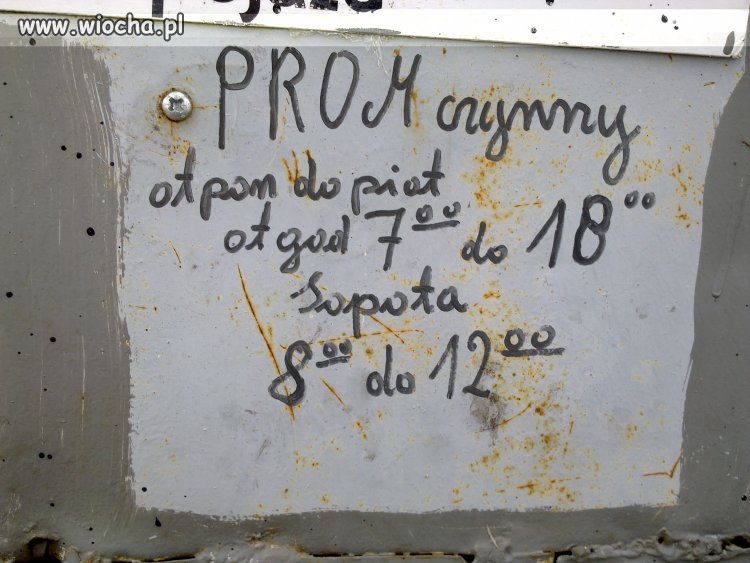 www.wiocha.pl
PROM czynny
ot pon do piot
ot god 7⁰⁰ do 18⁰⁰
Sopota
8⁰⁰ do 12⁰⁰